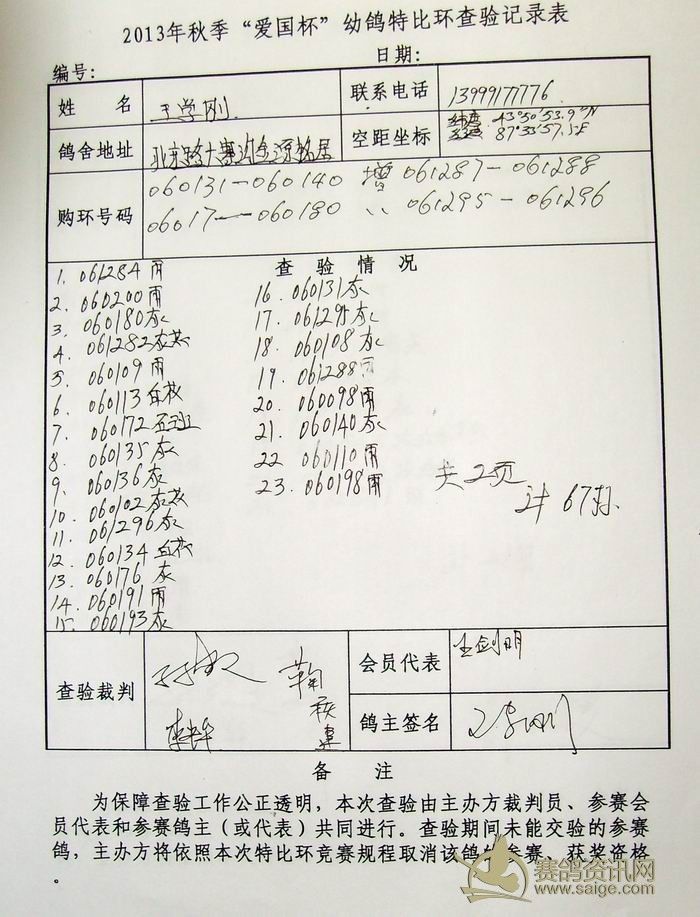 2013年秋季“爱国杯”幼鸽特比环查验记录表
编号: 日期:
姓 名 王学刚 联系电话 13999177776
鸽舍地址 北京路大寨沟 空距坐标 43°50′53.9″N 87°33′57.5″E
购环号码 060131—060140 增 061287—061288
06017—060180 〃 061295—061296
查 验 情 况
1. 061284 雨
2. 060200 雨
3. 060180 灰
4. 061282 灰花
5. 060109 雨
6. 060113 白花
7. 060172 石斑
8. 060135 灰
9. 060136 灰
10. 060102 灰花
11. 061296 灰
12. 060134 白花
13. 060176 灰
14. 060191 雨
15. 060193 灰
16. 060131 灰
17. 061295 灰
18. 060108 灰
19. 061288 雨
20. 060098 雨
21. 060140 灰
22 060110 雨
23. 060198 雨
共2页
计 67羽
查验裁判 会员代表 王剑明
鸽主签名
备 注
为保障查验工作公正透明，本次查验由主办方裁判员、参赛会
员代表和参赛鸽主（或代表）共同进行。查验期间未能交验的参赛
鸽，主办方将依照本次特比环竞赛规程取消该鸽的参赛、获奖资格
。
赛鸽资讯网
www.saige.com